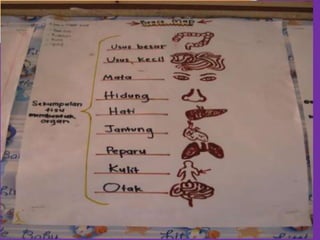 Brace Map
Usus besar
Usus kecil
Mata
Hidung
Hati
Jantung
Peparu
Kulit
Otak
Sekumpulan
tisu
membentuk
organ
Baby